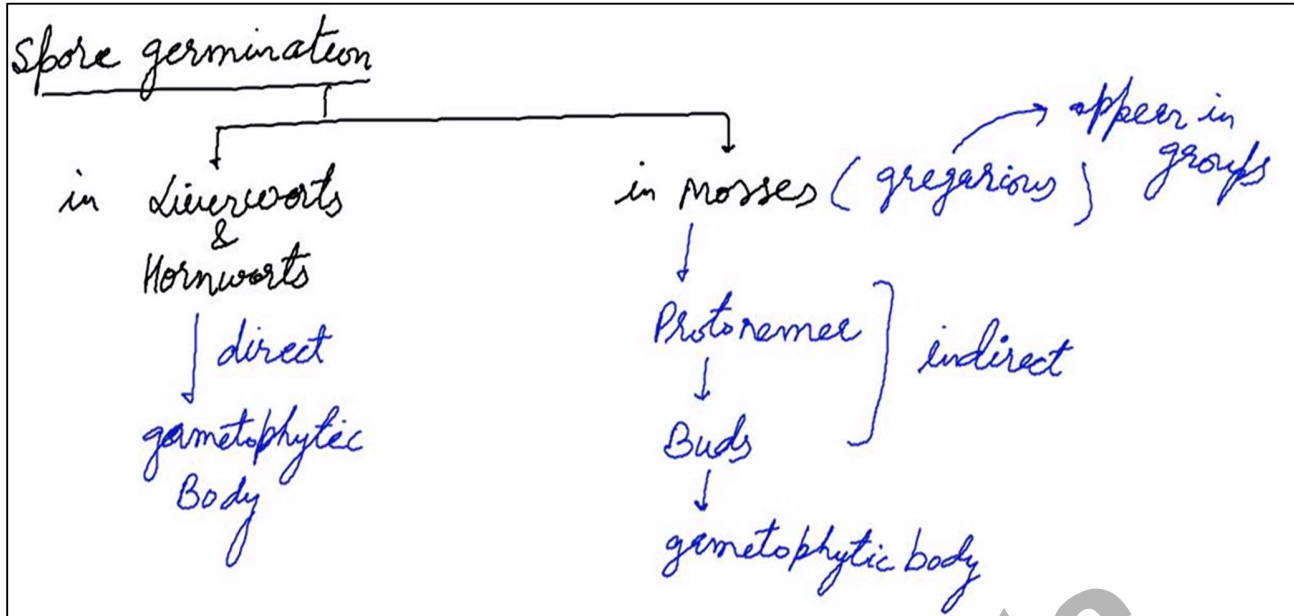 Spore germination
in Liverworts
&
Hornworts
direct
gametophytic
Body
in Mosses (gregarious)
appeer in
groups
Protonemer
Buds
indirect
gametophytic body